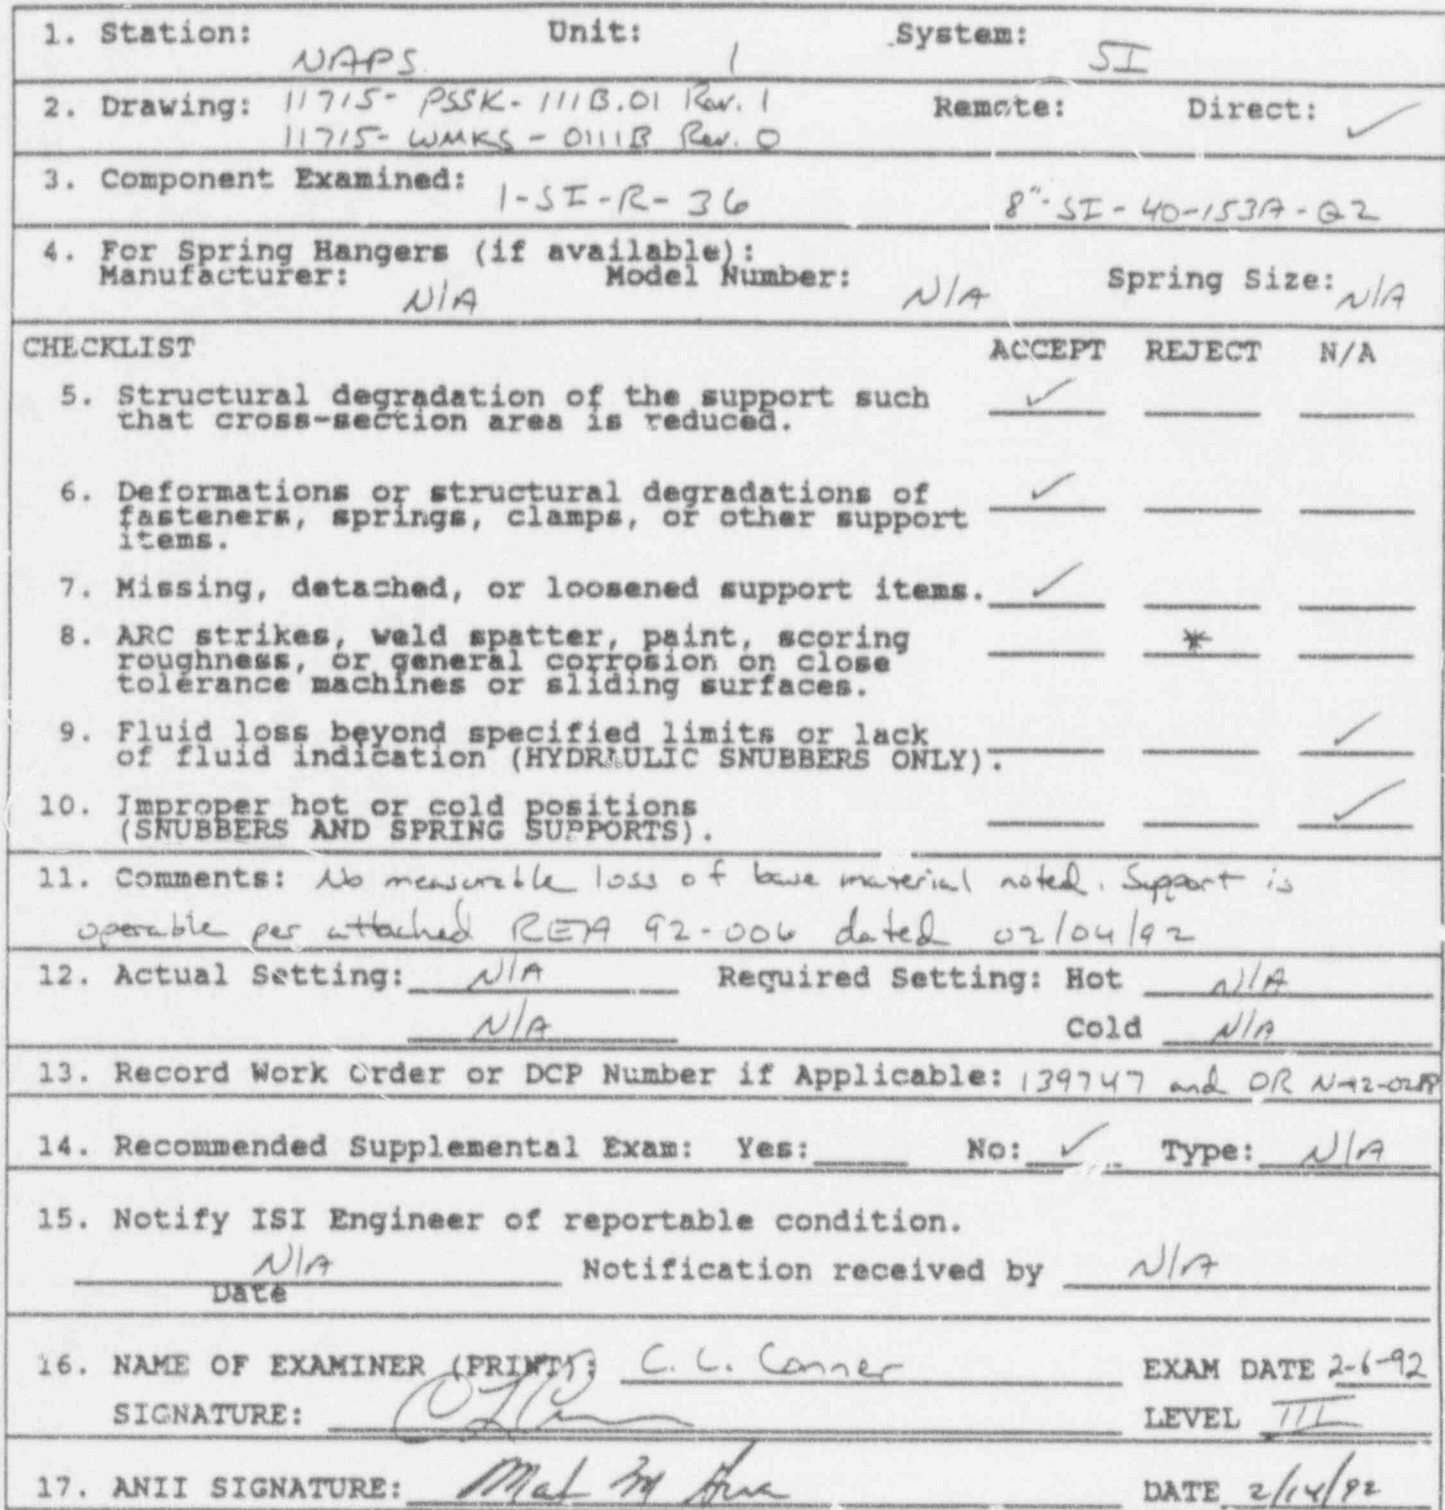 1. Station: NAPS Unit: 1 System: SI
2. Drawing: 11715- PSSK- 111B.01 Rev. 1 Remote: Direct: ✓
11715- WMKS - 0111B Rev. 0
3. Component Examined: 1-SI-R-36 8"-SI-40-153A-Q2
4. For Spring Hangers (if available):
Manufacturer: N/A Model Number: N/A Spring Size: N/A
CHECKLIST ACCEPT REJECT N/A
5. Structural degradation of the support such ✓
that cross-section area is reduced.
6. Deformations or structural degradations of ✓
fasteners, springs, clamps, or other support
items.
7. Missing, detached, or loosened support items. ✓
8. ARC strikes, weld spatter, paint, scoring *
roughness, or general corrosion on close
tolerance machines or sliding surfaces.
9. Fluid loss beyond specified limits or lack ✓
of fluid indication (HYDRAULIC SNUBBERS ONLY).
10. Improper hot or cold positions ✓
(SNUBBERS AND SPRING SUPPORTS).
11. Comments: No measurable loss of base material noted. Support is
operable per attached REA 92-006 dated 02/04/92
12. Actual Setting: N/A Required Setting: Hot N/A
N/A Cold N/A
13. Record Work Order or DCP Number if Applicable: 139747 and DR
14. Recommended Supplemental Exam: Yes: No: ✓ Type: N/A
15. Notify ISI Engineer of reportable condition.
N/A Notification received by N/A
Date
16. NAME OF EXAMINER (PRINT): C. L. Conner EXAM DATE 2-6-92
SIGNATURE: LEVEL III
17. ANII SIGNATURE: DATE 2/14/92